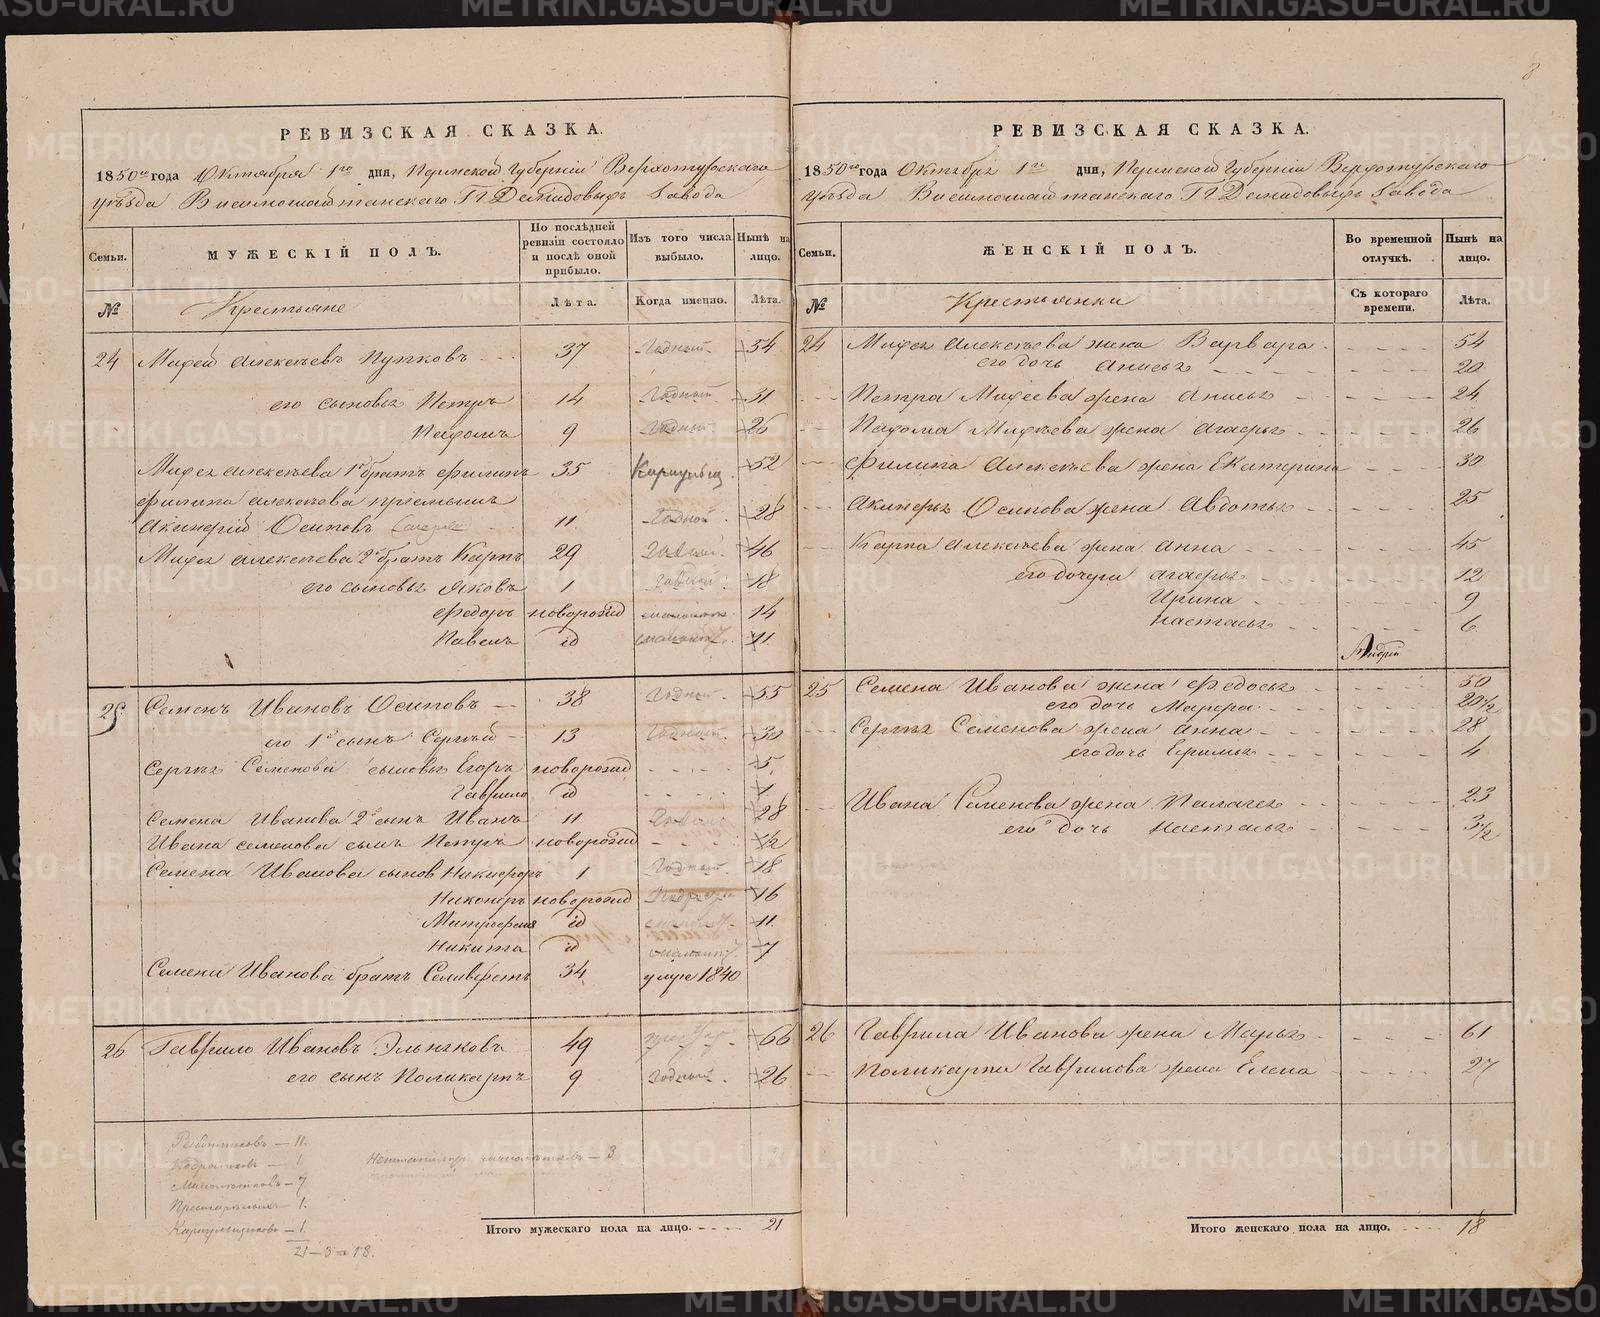 8
РЕВИЗСКАЯ СКАЗКА.
1850го года Октября 1го дня, Пермской Губернiи Верхотурскаго
уѣзда Висимошайтанскаго ГГ Демидовыхъ Завода
Семьи. МУЖЕСКIЙ ПОЛЪ. По послѣдней ревизiи состояло и послѣ оной прибыло. Изъ того числа выбыло. Нынѣ на лицо.
№ Крестьяне Лѣта. Когда именно. Лѣта.
24 Мифей Алексѣевъ Пупковъ 37 Годный 54
его сыновья Петръ 14 Годный 31
Пафомъ 9 Годный 26
Мифея Алексѣева 1й братъ Филипъ 35 52
Филипа Алексѣева прiемышъ
Акинфiй Осиповъ 11 Годной 28
Мифея Алексѣева 2й братъ Карпъ 29 Годный 46
его сыновья Яковъ 1 Годный 18
Федоръ новорожд 14
Павелъ id 11
25 Семенъ Ивановъ Осиповъ 38 Годный 55
его 1й сынъ Сергѣй 13 Годный 30
Сергѣя Семенова сыновья Егоръ новорожд 5
Гаврило id 1
Семена Иванова 2й сынъ Иванъ 11 28
Ивана Семенова сынъ Петръ новорожд 1/2
Семена Иванова сынов Никифоръ 1 Годный 18
Никоноръ новорожд 16
Митрофанъ id 11
Никита id 7
Семена Иванова братъ Селиверстъ 34 умре 1840
26 Гаврило Ивановъ 49 66
его сынъ Поликарпъ 9 Годный 26
Работниковъ — 11.
— 1
Малолѣтковъ — 7
Престарѣлыхъ 1.
— 1.
21—3=18.
малолѣтковъ — 3
Итого мужескаго пола на лицо. 21
РЕВИЗСКАЯ СКАЗКА.
1850го года Октября 1го дня, Пермской Губернiи Верхотурскаго
уѣзда Висимошайтанскаго ГГ Демидовыхъ Завода
Семьи. ЖЕНСКIЙ ПОЛЪ. Во временной отлучкѣ. Нынѣ на лицо.
№ Крестьянки Съ котораго времени. Лѣта.
24 Мифея Алексѣева жена Варвара 54
его дочь Анисья 20
Петра Мифеева жена Анисья 24
Пафома Мифѣева жена Агафья 26
Филипа Алексѣева жена Екатерина 30
Акинфья Осипова жена Авдотья 25
Карпа Алексѣева жена Анна 45
его дочери Агафья 12
Ирина 9
Настасья 6
25 Семена Иванова жена Федосья 50
его дочь Марфа 20 1/2
Сергѣя Семенова жена Анна 28
его дочь 4
Ивана Семенова жена Палагея 23
его дочь Настасья 3 1/2
26 Гаврила Иванова жена Марья 61
Поликарпа Гаврилова жена Елена 27
Итого женскаго пола на лицо. 18
METRIKI.GASO-URAL.RU